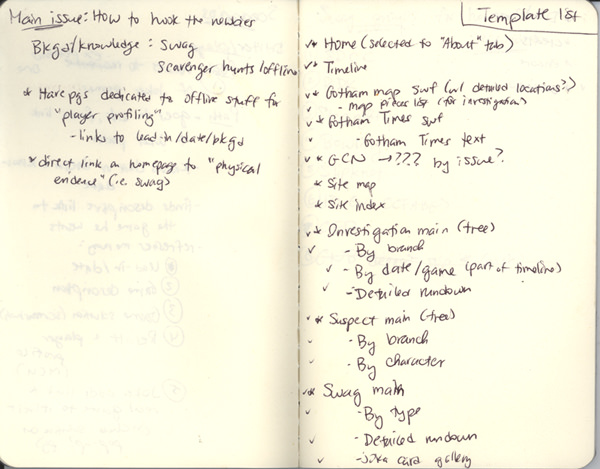 Main issue: How to hook the newbies
Bkgd/knowledge: Swag
Scavenger hunts/offline
* Have pgs dedicated to offline stuff for
"player profiling"
- links to lead-in/date/bkgd
* direct link on homepage to "physical
evidence" (i.e. swag)
Template list
✓* Home (selected to "About" tab)
✓* Timeline
✓* Gotham map swf (w/ detailed locations?)
- map pieces list (for investigation)
✓* Gotham Times swf
✓ - Gotham Times text
✓* GCN → ??? by issue?
* Site map
* Site index
✓* Investigation main (tree)
✓ - By branch
✓ - By date/game (part of timeline)
✓ - Detailed rundown
✓* Suspect main (tree)
✓ - By branch
✓ - By character
✓* Swag main
✓ - By type
✓ - Detailed rundown
✓ - Joka card gallery